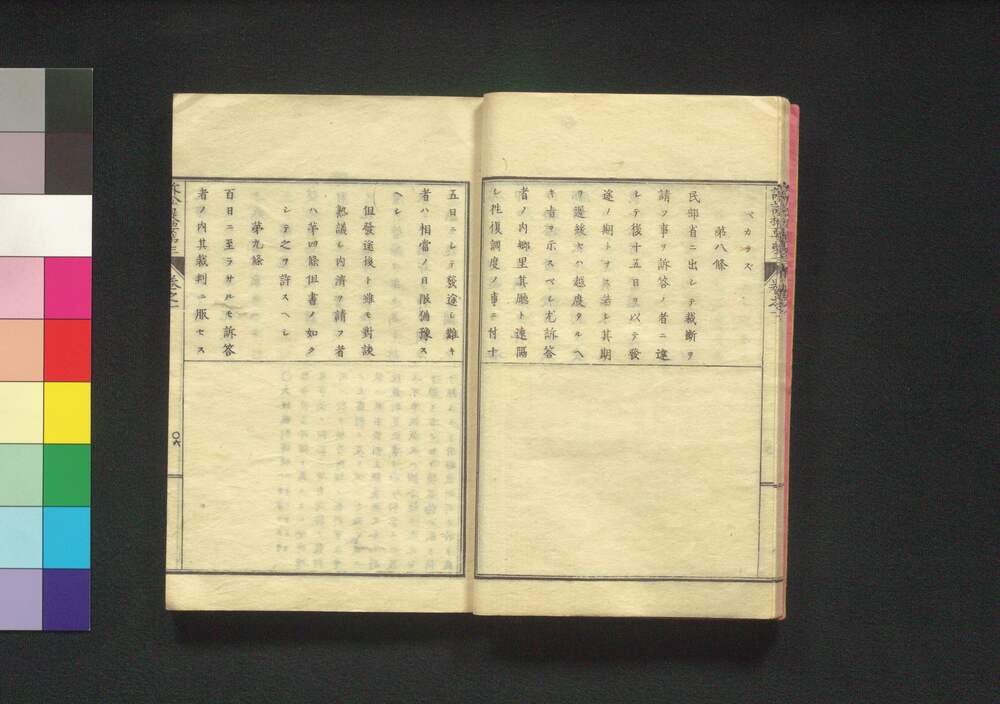 ベカラズ
第八條
民部省ニ出シテ裁斷ヲ
請フ事ヲ訴答ノ者ニ達
シテ後十五日ヲ以テ發
途ノ期トヲス若シ其期
ヲ遲緩セハ越度タルヘ
キ書ヲ示スベシ尤訴答
者ノ内郷里其廳ト遠隔
シ徃復調度ノ事ニ付十
五日ニシテ發途シ難キ
者ハ相當ノ日限猶豫ス
ヘシ
但發途後ト雖モ對談
熟議シ内濟ヲ請フ者
ハ第四條但書ノ如ク
シテ之ヲ許スヘシ
第九條
百日ニ至ラサルモ訴答
者ノ内其裁判ニ服セス